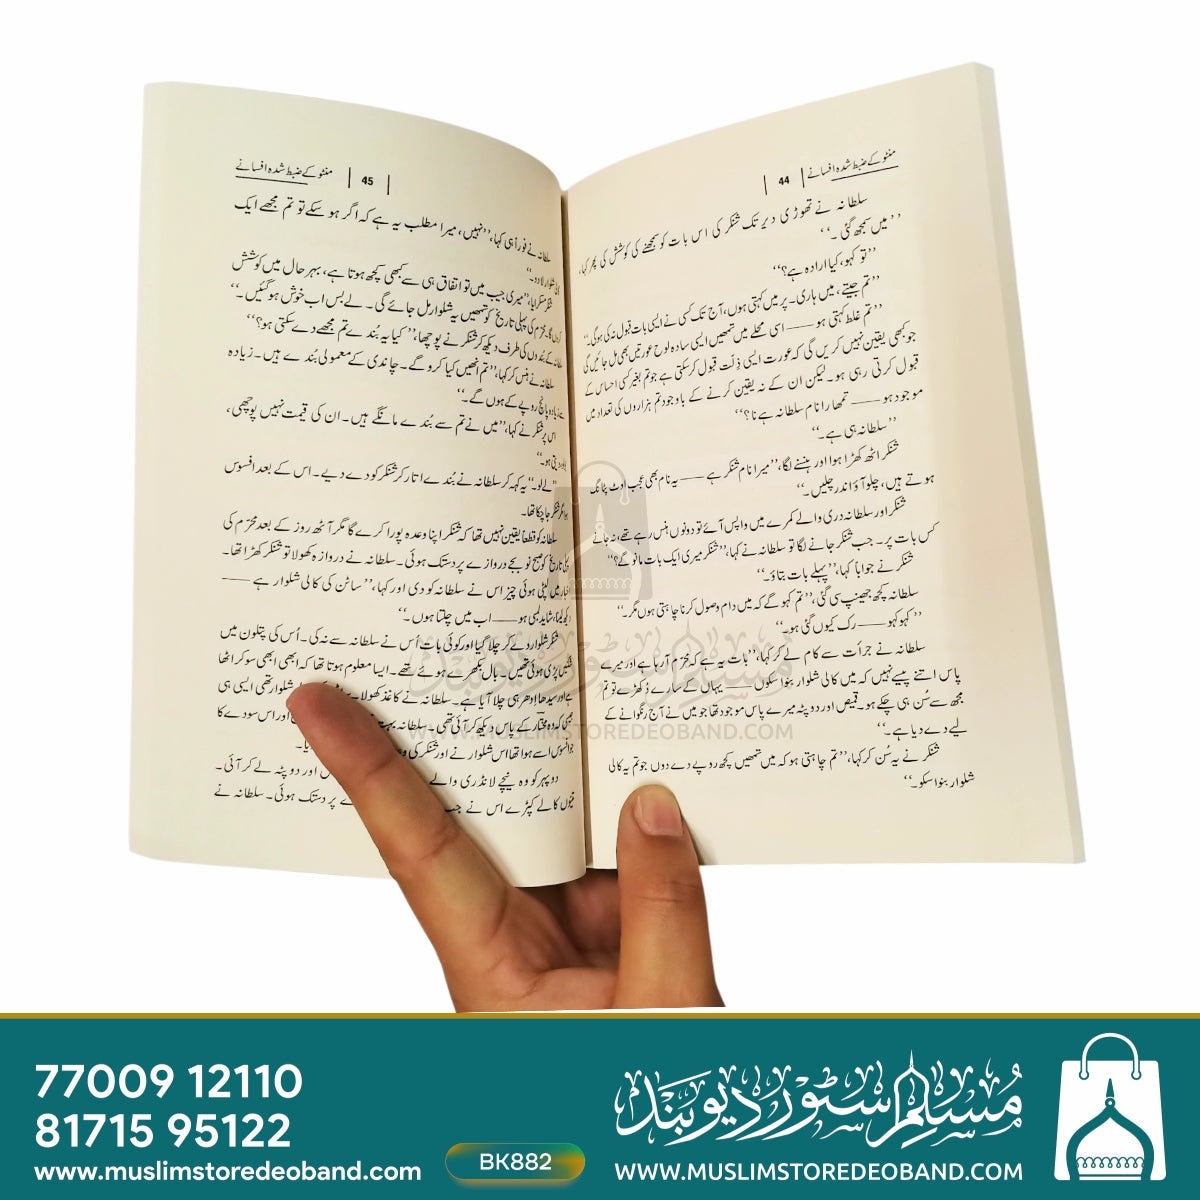 منٹو کے ضبط شدہ افسانے | 44 |
سلطانہ نے تھوڑی دیر تک شنکر کی اس بات کو سمجھنے کی کوشش کی پھر کہا،
’’میں سمجھ گئی۔‘‘
’’تو کہو، کیا ارادہ ہے؟‘‘
’’تم جیتے، میں ہاری۔ پر میں کہتی ہوں، آج تک کسی نے ایسی بات قبول نہ کی ہوگی۔‘‘
’’تم غلط کہتی ہو —— اسی محلے میں تمھیں ایسی سادہ لوح عورتیں بھی مل جائیں گی
جو کبھی یقین نہیں کریں گی کہ عورت ایسی ذلت قبول کرسکتی ہے جو تم بغیر کسی احساس کے
قبول کرتی رہی ہو۔ لیکن ان کے نہ یقین کرنے کے باوجود تم ہزاروں کی تعداد میں
موجود ہو —— تمھارا نام سلطانہ ہے نا؟‘‘
’’سلطانہ ہی ہے۔‘‘
شنکر اٹھ کھڑا ہوا اور ہنسنے لگا، ’’میرا نام شنکر ہے —— یہ نام بھی عجب اوٹ پٹانگ
ہوتے ہیں، چلو آؤ اندر چلیں۔‘‘
شنکر اور سلطانہ دری والے کمرے میں واپس آئے تو دونوں ہنس رہے تھے، نہ جانے
کس بات پر۔ جب شنکر جانے لگا تو سلطانہ نے کہا، ’’شنکر میری ایک بات مانو گے؟‘‘
شنکر نے جواباً کہا، ’’پہلے بات بتاؤ۔‘‘
سلطانہ کچھ جھینپ سی گئی، ’’تم کہو گے کہ میں دام وصول کرنا چاہتی ہوں مگر۔‘‘
’’کہو کہو —— رک کیوں گئی ہو۔‘‘
سلطانہ نے جرأت سے کام لے کر کہا، ’’بات یہ ہے کہ محرم آ رہا ہے اور میرے
پاس اتنے پیسے نہیں کہ میں کالی شلوار بنوا سکوں —— یہاں کے سارے دُکھڑے تو تم
مجھ سے سُن ہی چکے ہو۔ قمیص اور دوپٹہ میرے پاس موجود تھا جو میں نے آج رنگوانے کے
لیے دے دیا ہے۔‘‘
شنکر نے یہ سُن کر کہا، ’’تم چاہتی ہو کہ میں تمھیں کچھ روپے دے دوں جو تم یہ کالی
شلوار بنوا سکو۔‘‘
| 45 | منٹو کے ضبط شدہ افسانے
سلطانہ نے فوراً ہی کہا، ’’نہیں، میرا مطلب یہ ہے کہ اگر ہو سکے تو تم مجھے ایک
شلوار لا دو۔‘‘
شنکر مسکرایا، ’’میری جیب میں تو اتفاق ہی سے کبھی کچھ ہوتا ہے، بہر حال میں کوشش
کروں گا۔ محرم کی پہلی تاریخ کو تمھیں یہ شلوار مل جائے گی۔ لے بس اب خوش ہو گئیں۔‘‘
سلطانہ کے بُندوں کی طرف دیکھ کر شنکر نے پوچھا، ’’کیا یہ بُندے تم مجھے دے سکتی ہو؟‘‘
سلطانہ نے ہنس کر کہا، ’’تم انھیں کیا کرو گے۔ چاندی کے معمولی بُندے ہیں۔ زیادہ
سے زیادہ پانچ روپے کے ہوں گے۔‘‘
اس پر شنکر نے کہا، ’’میں نے تم سے بُندے مانگے ہیں۔ ان کی قیمت نہیں پوچھی،
دیتی ہو۔‘‘
’’لے لو۔‘‘ یہ کہہ کر سلطانہ نے بُندے اتار کر شنکر کو دے دیے۔ اس کے بعد افسوس
ہوا مگر شنکر جا چکا تھا۔
سلطانہ کو قطعاً یقین نہیں تھا کہ شنکر اپنا وعدہ پورا کرے گا مگر آٹھ روز کے بعد محرم کی
پہلی تاریخ کو صبح نو بجے دروازے پر دستک ہوئی۔ سلطانہ نے دروازہ کھولا تو شنکر کھڑا تھا۔
اخبار میں لپٹی ہوئی چیز اس نے سلطانہ کو دی اور کہا، ’’ساٹن کی کالی شلوار ہے ——
دیکھ لینا، شاید لمبی ہو —— اب میں چلتا ہوں۔‘‘
شنکر شلوار دے کر چلا گیا اور کوئی بات اُس نے سلطانہ سے نہ کی۔ اُس کی پتلون میں
شکنیں پڑی ہوئی تھیں۔ بال بکھرے ہوئے تھے۔ ایسا معلوم ہوتا تھا کہ ابھی ابھی سو کر اٹھا
ہے اور سیدھا اِدھر ہی چلا آیا ہے۔ سلطانہ نے کاغذ کھولا۔ شلوار تھی ایسی ہی
جیسی کہ وہ مختار کے پاس دیکھ کر آئی تھی۔ سلطانہ بہت اور اس سودے کا
جو افسوس اسے ہوا تھا اس شلوار نے اور شنکر کی
دوپہر کو وہ نیچے لانڈری والے اور دوپٹہ لے کر آئی۔
تینوں کالے کپڑے اس نے جب پر دستک ہوئی۔ سلطانہ نے
WWW.MUSLIMSTOREDEOBAND.COM
77009 12110
81715 95122
www.muslimstoredeoband.com
BK882
مسلم سٹور دیوبند
WWW.MUSLIMSTOREDEOBAND.COM